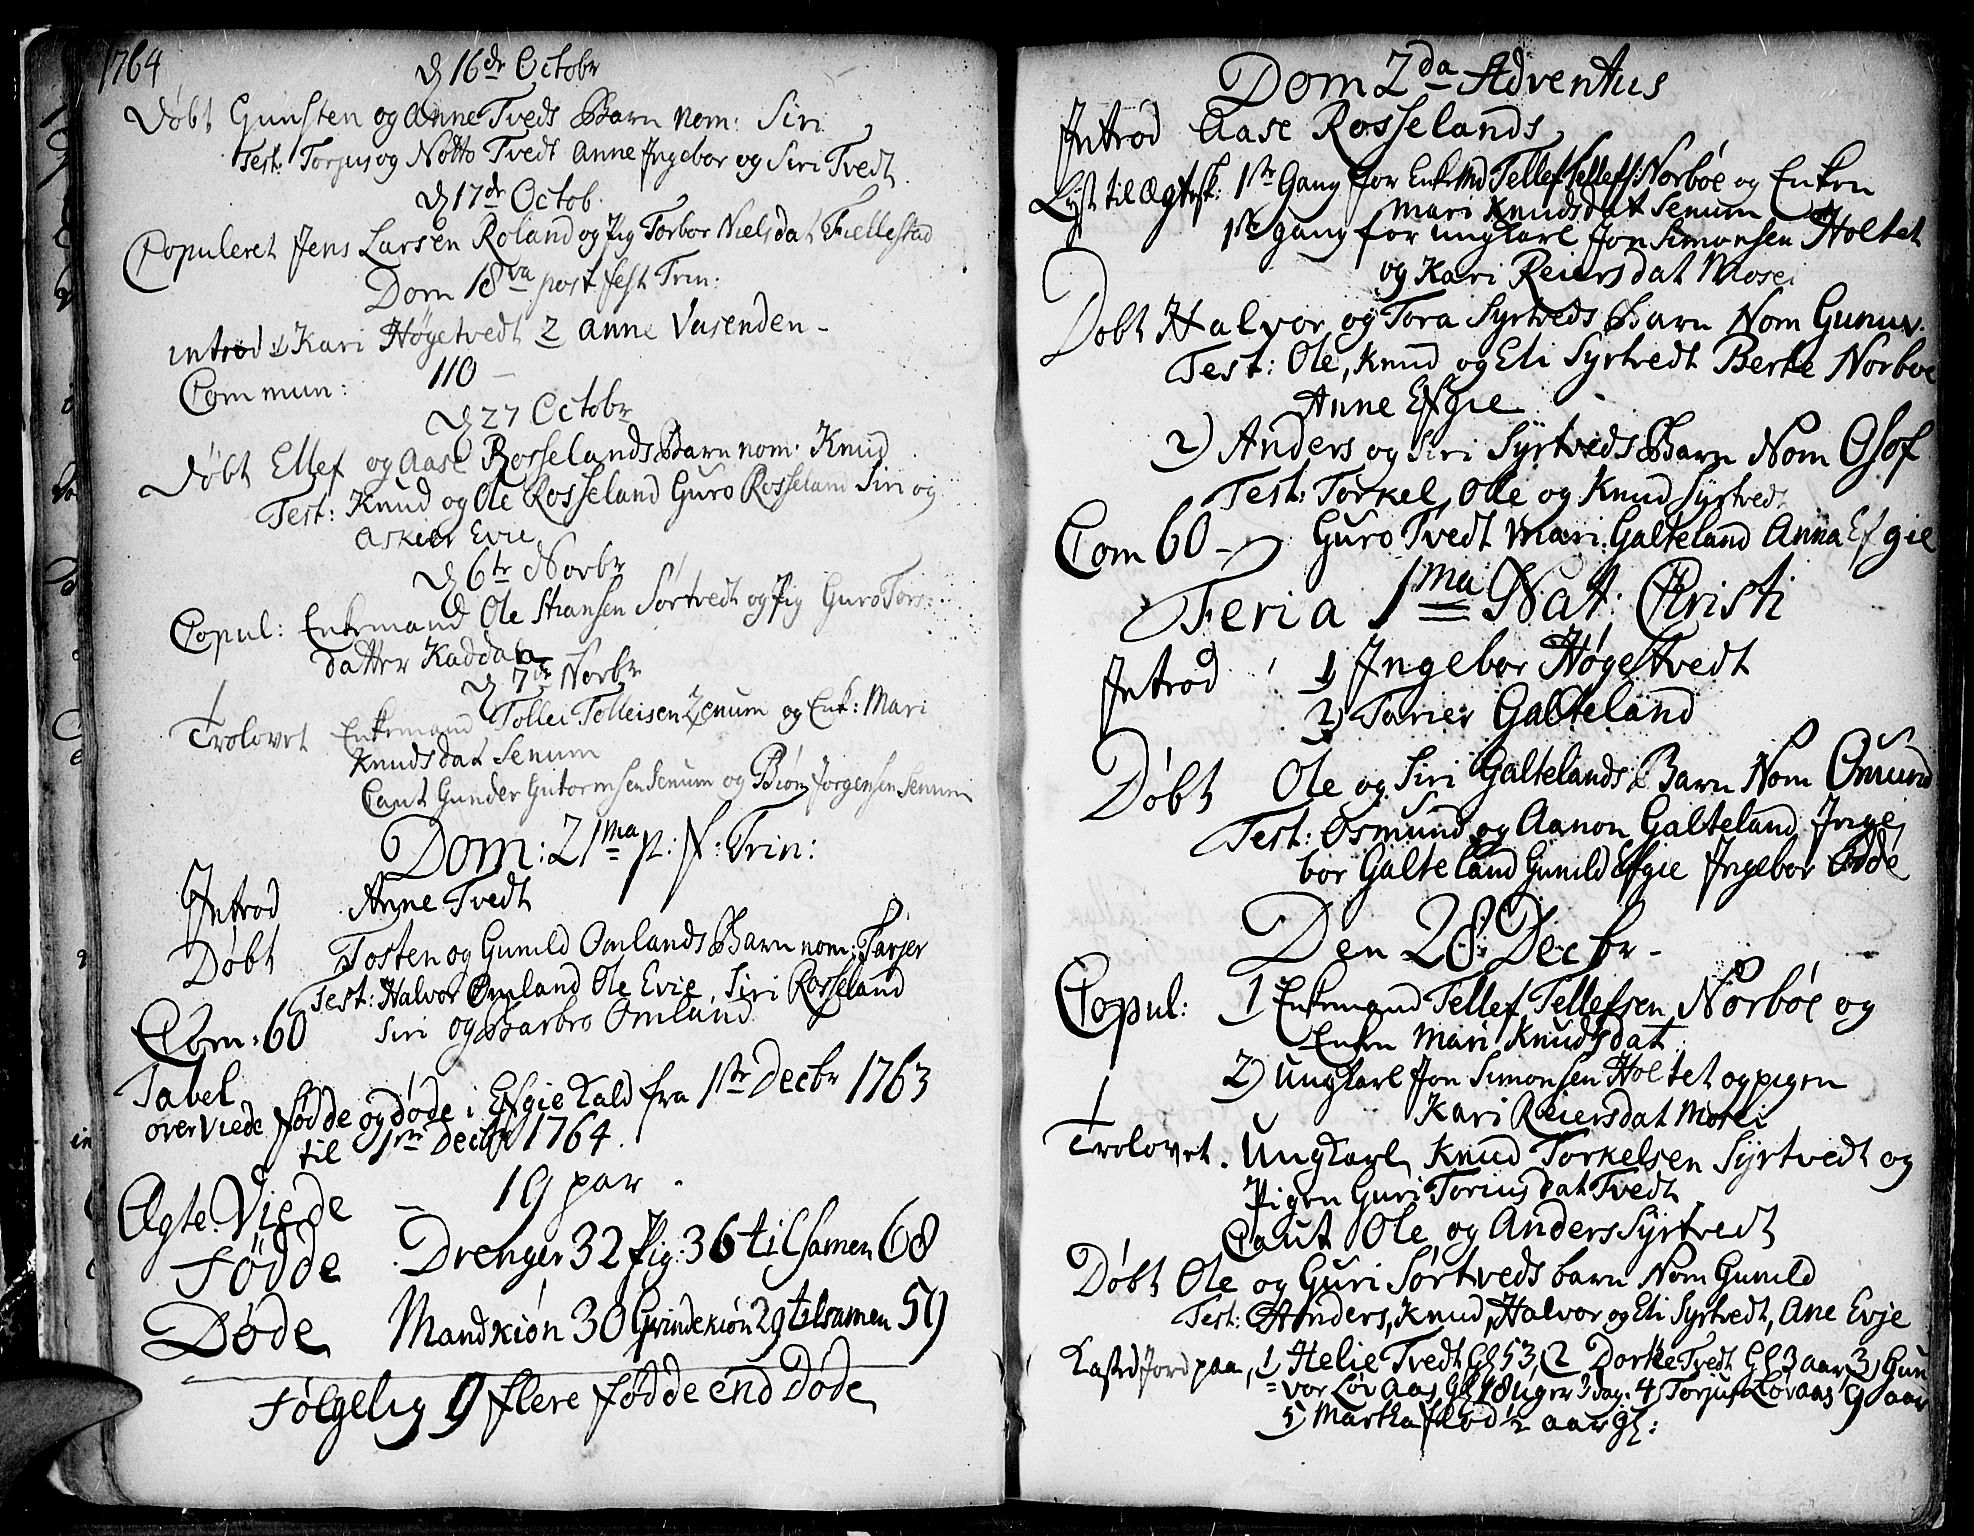 1764
D 16de Octobr
Døbt Gunsten og Anne Tveds Barn nom: Siri
Test: Torjus og Notto Tvedt Anne Ingebor og Siri Tvedt.
D 17de Octob.
Copuleret Jens Larsen Roland og Pig Torbor Nielsdat Fiellestad
Dom 18va post fest Trin:
introd 1 Kari Høgetvedt 2 Anne Vasenden -
Commun: 110 -
D 27 Octobr
Døbt Ellef og Aase Rosselands Barn nom: Knud
Test: Knud og Ole Rosseland Guro Rosseland Siri og
Askier Evie
D 6te Novbr
Copul: Enkemand Ole Hansen Sørtvedt og Pig Guro Tors:
datter Kaddan
D 7de Novbr
Trolovet Enkemand Tollei Tolleisen Senum og Enk: Mari
Knudsdat Senum
Caut Gunder Gutormsen Senum og Biørn Jørgensen Senum
Dom: 21ma p: f: Trin:
Introd Anne Tvedt
Døbt Tosten og Gunild Omlands Barn nom: Tarjer
Test: Halvor Omland Ole Evie, Siri Rosseland
Com: 60 Siri og Barbro Omland
Tabel
over Viede fødde og døde i Efgie Kald fra 1ste Decbr 1763
til 1ste Decbr 1764.
Ægte Viede - 19 par.
Fødde Drenger 32 Pig: 36 tilsamen 68
Døde Mandkiøn 30 Qvindekiøn 29 tilsamen 59
Følgelig 9 flere fødde end Døde
Dom 2da Adventus
Introd Aase Rosselands
Lyst til Ægtesk: 1ste Gang for Enkemd Tellef Tellefs: Norbøe og Enken
Mari Knudsdat Senum
1ste gang for ungkarl Jon Simonsen Holtet
og Kari Reiersdat Mosei
Døbt Halvor og Tora Syrtveds Barn Nom Gunuv.
Test: Ole, Knud og Eli Syrtvedt Berte Norboe
Anne Efgie
2) Anders og Siri Syrtveds Barn Nom Osof
Test: Torkel, Olle og Knud Syrtvedt
Com 60 - Guro Tvedt Mari Galteland Anna Efgie
Feria 1ma Nat: Christi
Introd 1 Ingebor Høgestvedt
2) Tarier Galteland
Døbt Ole og Siri Galtelands Barn Nom Omund
Test: Osmund og Aanon Galteland, Inge,
bor Galteland Gunild Efgie Ingebor Odde
Den 28: Decbr -
Copul: 1 Enkemand Tellef Tellefsen Norbøe og
Enken Mari Knudsdat
2) Ungkarl Jon Simonsen Holtet og pigen
Kari Reiersdat Mosei
Trolovet. Ungkarl Knud Torkelsen Syrtvedt og
Pigen Guri Toriusdat Tvedt
Caut Ole og Anders Syrtvedt
Døbt Ole og Guri Sørtveds barn Nom Gunild
Test: Anders, Knud, Halvor og Eli Syrtvedt, Ane Evje
Kasted Jord paa, 1 Helie Tvedt Gl 53, 2 Dorke Tvedt Gl 3 aar 3, Gun
vor Løv Aas Gl 18 uger 3 dag. 4 Torjus Løvaas 9 aar
5) Martha Flod ½ aar gl: